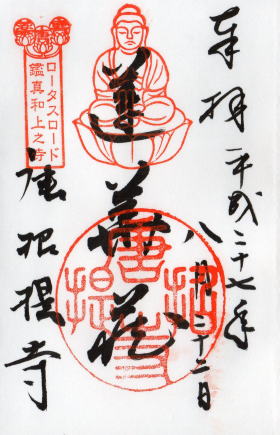 奉拝
平成二十七年
八月二十二日
蓮華蔵
ロータスロード
鑑真和上之寺
唐招提寺
唐招提寺